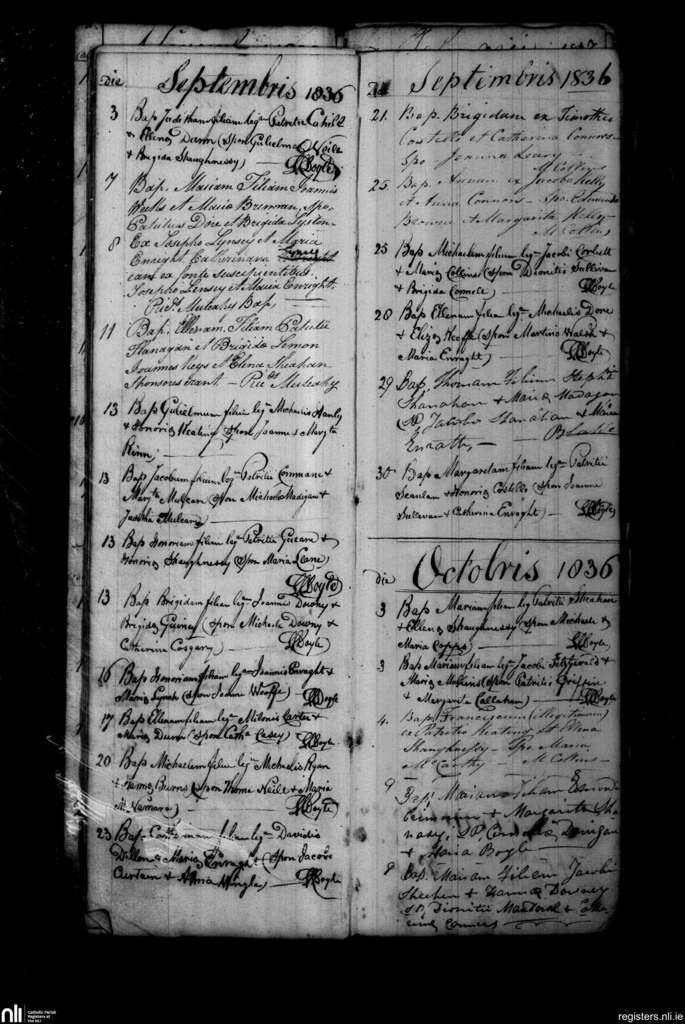 die Septembris 1836
3 Bap Judithan filiam legm Patritii Cahill
& Ellena Dunn (Spon Gulielmo Neile
& Brigida Shaughnessy) — Boyle
7 Bap. Mariam Filiam Joannis
Weeks A Maria Brennan, Spo.
Patritius Dore et Brigida Lyston
8 Ex Josepho Lynsey et Maria
Enright Catherinam
eam ex fonte suscepientibus
Josepho Lensey A Maria Enright,
Rudd Mulcahy Bap.
11 Bap. Ellenam, Filiam Patritii
Flanagan A Brigida Lemon
Joannes Keys A Elena Sheahan
Sponsores erant —
Mulcahy
13 Bap Gulielmum filium legm Michaelis Hanly
& Honoria Keating (Spon Joanne & Margta
Rinn)
13 Bap Jacobum filium legm Patritii Connane &
Margta Mulcean (Spon Michaele Madigan &
Judtha Mulcane)
13 Bap Honoriam filiam legm Patritii Gueane &
Honoria Shaughnessy (Spon Maria Leane)
Boyle
13 Bap Brigidam filiam legm Joannis Downy &
Brigida Guiney (Spon Michaele Downy &
Catherina Cosgary) — Boyle
16 Bap Honoriam filiam legm Joannis Enraght &
Maria Lynch (Spon Joanne Woulfe) — Boyle
17 Bap Ellenam filiam legm Carter &
Maria Dunn (Spon Catha Casey) — Boyle
20 Bap Michaelem filium legm Michaelis Ryan
& Hanna Burns (Spon Thoma Neile & Maria
Mc Namara) — Boyle
23 Bap filiam legm Davidis
Dillon & Maria Enraght (Spon Jacobo
Curtain & Anna Mingle) — Boyle
Septimbris 1836
21. Bap. Brigidam ex Timotheo
Costello et Catharina Connors—
Spo — Joanna Leary —
M Collins
25. Bap. Annam ex Jacobo Kelly
et Anna Connors — Spo. Edmundo
Browne A Margarita Kelly—
M Collins
25 Bap Michaelem filium legm Jacobi Corbett
& Maria Collins (Spon Dionitio Sullivan
& Brigida Connell) — Boyle
28 Bap Ellenam filiam legm Michaelis Dore
& Eliza Keeffe (Spon Martino Walsh &
Maria Enraght) Boyle
29 Bap. Thomam Filium Stephni
Shanahan & Maria Madagan
Sp Jacobo Shanahan & Maria
Enratt —
30 Bap Margaretam filiam legm Patritii
Scanlan & Honoria Costello (Spon Joanne
Sullevan & Catherina Enraght) — Boyle
die Octobris 1836
3 Bap Mariam filiam leg Patritii Sheahan
& Ellena Shaughnessy (Spon Michaele &
Maria Capps) — Boyle
3 Bap Mariam filiam legm Jacobi Fitzgerald &
Maria Mullins (Spon Patritio Griffin
& Margarita Callahan) — Boyle
4. Bap. Franciscum (illegitimum)
ex Patritio Keating et Elena
Shaughnessy — Spo Maria
McCarthy — M Collins—
9 Bap. Mariam Filiam Edmondi
& Margarita Sha
nasy, SP Cornelio Dungan
& Maria Boyle
9 Bap. Mariam Filiam Jacobi
Sheehen & Hanna Downey
SP, Dionitii & Catha
rina Connors
nli Catholic Parish
Registers at
the NLI
registers.nli.ie